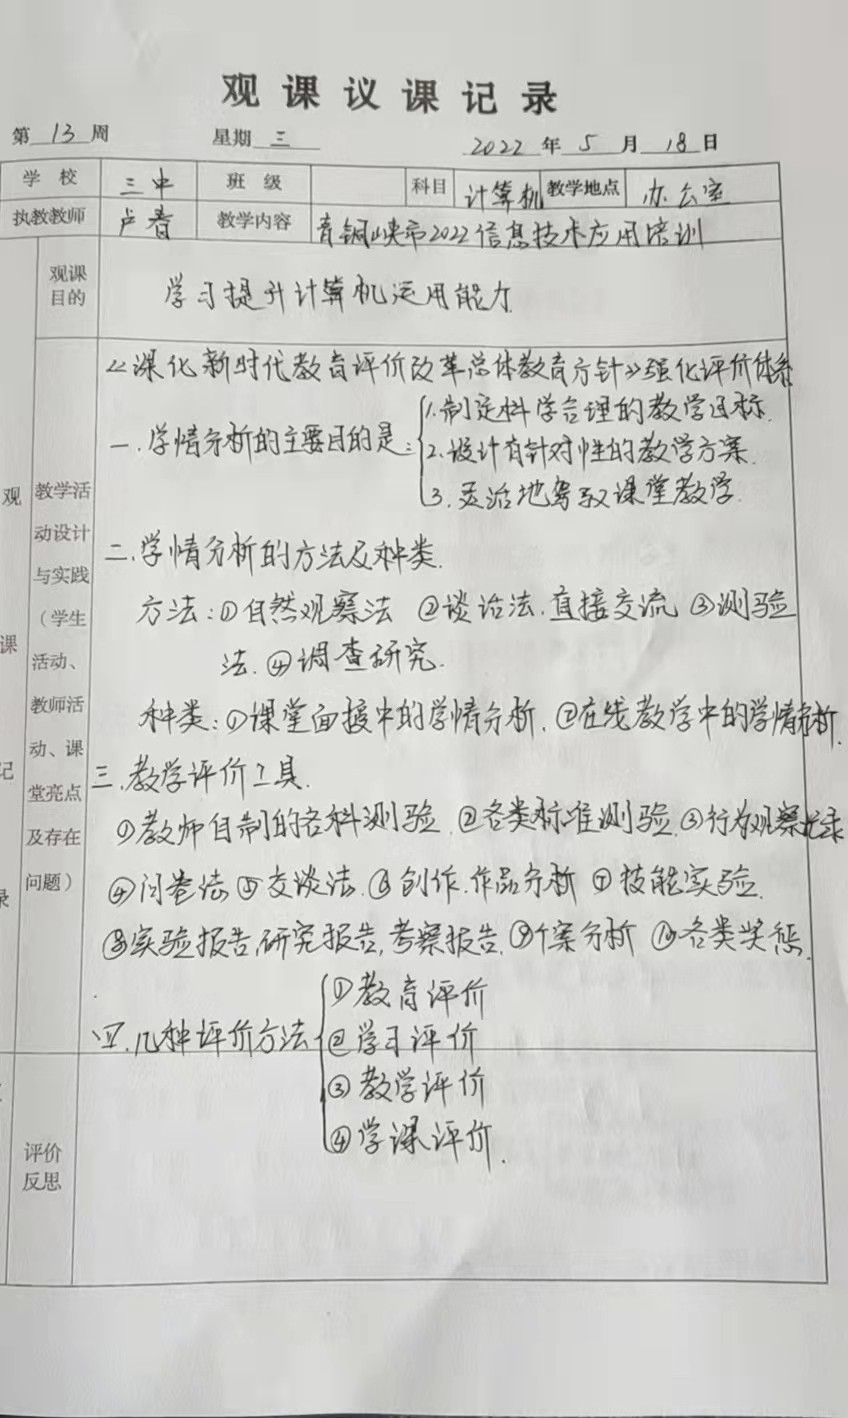 观课议课记录
第 13 周 星期 三 2022 年 5 月 18 日
学校 三中 班级 科目 计算机 教学地点 办公室
执教教师 卢春 教学内容 青铜峡市2022信息技术应用培训
观课目的 学习提升计算机运用能力
观课记录
教学活动设计与实践（学生活动、教师活动、课堂亮点及存在问题）
《深化新时代教育评价改革总体教育方针》强化评价体系
一.学情分析的主要目的是:
1.制定科学合理的教学目标.
2.设计有针对性的教学方案.
3.灵活地驾驭课堂教学.
二.学情分析的方法及种类.
方法:①自然观察法 ②谈话法.直接交流 ③测验
法.④调查研究.
种类:①课堂面接中的学情分析.②在线教学中的学情分析.
三.教学评价工具.
①教师自制的各科测验.②各类标准测验.③行为观察记录
④问卷法⑤交谈法.⑥创作.作品分析 ⑦技能实验.
⑧实验报告,研究报告,考察报告.⑨个案分析 ⑩各类奖惩.
四.几种评价方法
①教育评价
②学习评价
③教学评价
④学课评价.
评价反思